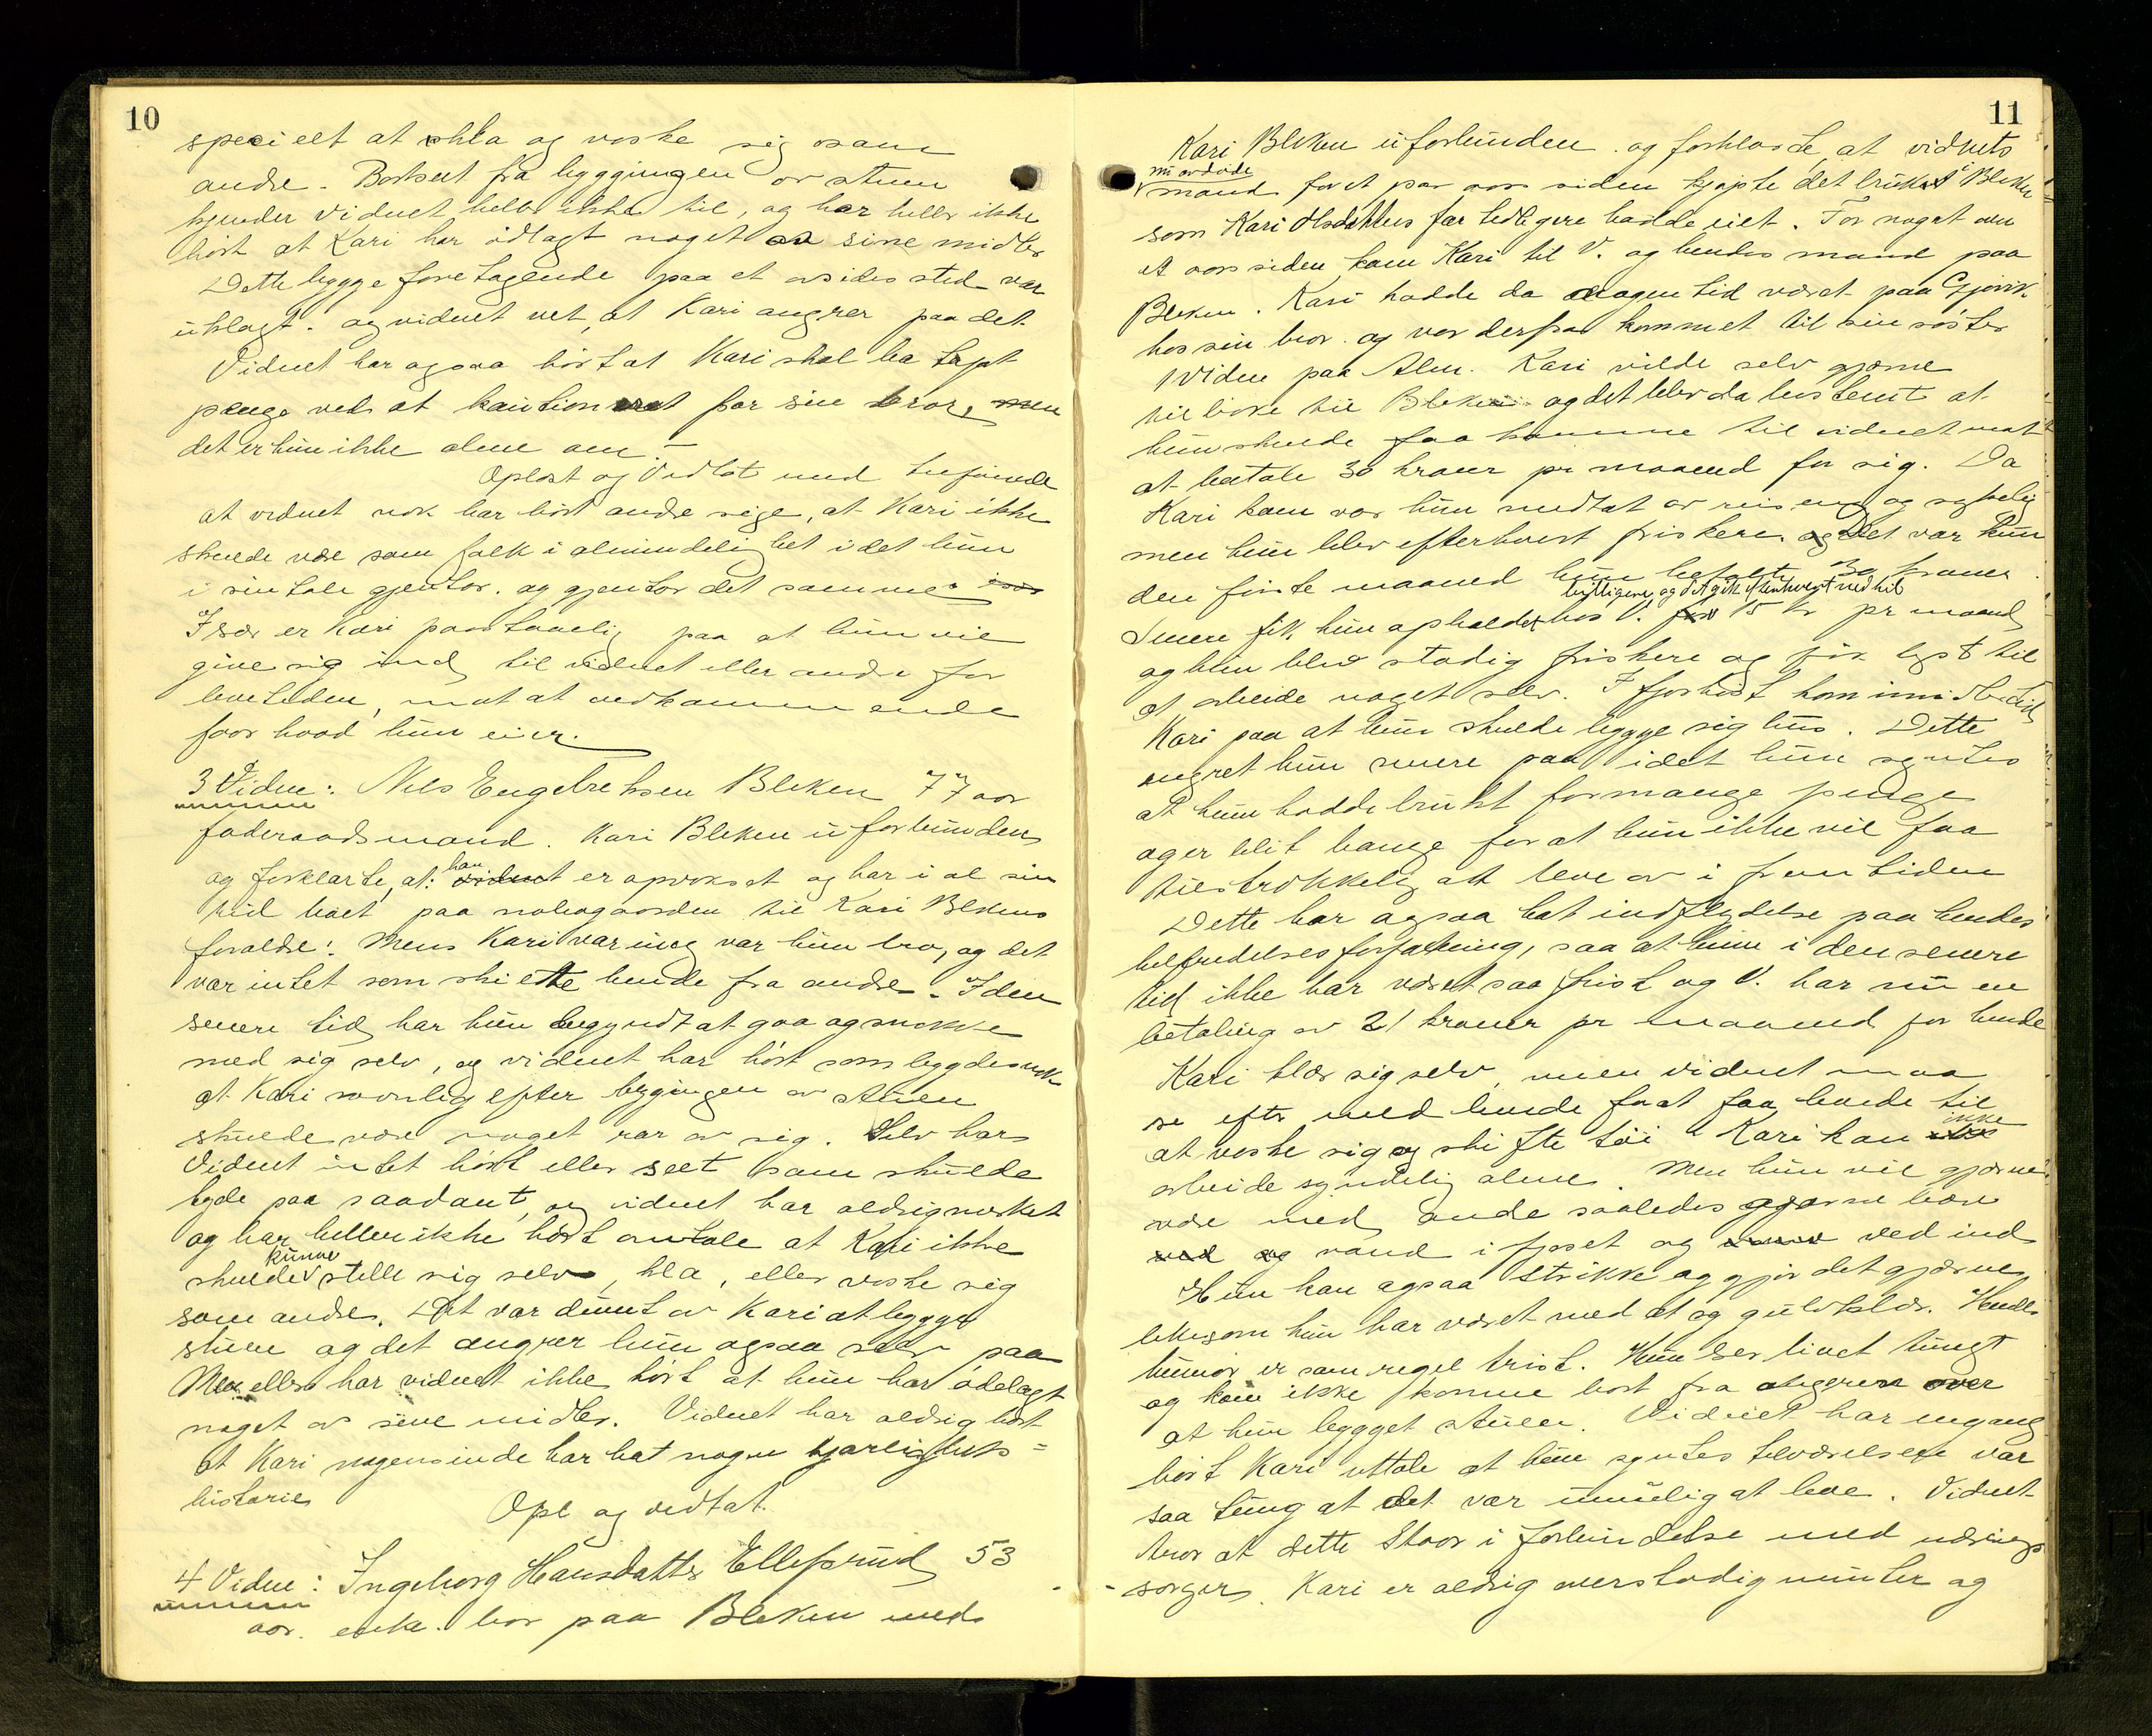 10
specielt at klæ og vaske sig som
andre. Bortseet fra byggingen av stuen
kjender vidnet heller ikke til, og har heller ikke
hört at Kari har ödlagt noget av sine midler
Dette bygge foretagende paa et avsides sted var
uklogt. og vidnet vet, at Kari angrer paa det
Vidnet har ogsaa hört at Kari skal ha tapt
penge ved at kautionert for sin bror, men
det er hun ikke alene om.
Oplæst og Vedtat med tilföiende
at vidnet nok har hört andre sige, at Kari ikke
skulde være som folk i almindelighet idet hun
i sin tale gjentar. og gjentar det samme.
Især er Kari paastaaelig paa at hun vil
give sig ind til vidnet eller andre for
levetiden, mot at vedkommende
faar hvad hun eier.
3 Vidne: Nils Engebretsen Bleken 77 aar
föderaadsmand. Kari Bleken uforbunden
og forklarte, at: han vidnet er opvokset og har i al sin
tid boet paa nabogaarden til Kari Blekens
foraldre: Mens Kari var ung var hun bra, og det
var intet som skiette hende fra andre. I den
senere tid har hun begyndt at gaa og snakke
med sig selv, og vidnet har hört som bygdesnak
at Kari navnlig efter bygingen av stuen
skulde være noget rar av sig. Selv har
Vidnet intet hört eller seet som skulde
tyde paa saadant, og vidnet har aldrig merket
og har heller ikke hört omtale at Kari ikke
kunne
skulde stelle sig selv, klæ, eller vaske sig
som andre. Det var dumt av Kari at bygge
stuen og det angrer hun ogsaa selv paa
Men ellers har vidnet ikke hört at hun har ödelagt
noget av sine midler. Vidnet har aldrig hört
at Kari nogensinde har hat nogen kjærlighets=
historie
Opl og vedtat.
4 Vidne: Ingeborg Hansdatter Ellefsrud 53
aar. enke. bor paa Bleken med
11
Kari Bleken uforbunden. og forklarte, at vidnets
nu avdöde
mand for et par aar siden kjöpte det bruket i Bleken
som Kari Olsdatters far tidligere hadde eiet. For noget over
et aar siden kom Kari til V. og hendes mand paa
Bleken. Kari hadde da nogen tid været paa Gjövik
hos sin bror. og var derfra kommet til sin söster
Vidne paa Alm. Kari vilde selv gjerne
tilbake til Bleken og det blev da bestemt at
hun skulde faa komme til vidnet mot
at betale 30 kroner pr maaned for sig. Da
Kari kom var hun medtat av reisen og sykelig
men hun blev efterhvert friskere. og Det var kun
den förste maaned hun betalte 30 kroner.
billigere, og det gik efterhvert ned til
Senere fik hun opholdet hos V. for 15 kr pr maaned
og hun blev stadig friskere og fik lyst til
at arbeide noget selv. I fjorhöst kom imidlertid
Kari paa at hun skulde bygge sig hus. Dette
angret hun senere paa idet hun syntes
at hun hadde brukt formange penge
og er blit bange for at hun ikke vil faa
tilstrækkelig at leve av i fremtiden
Dette har ogsaa hat indflydelse paa hendes
helbredelsesforfatning, saa at hun i den senere
tid ikke har været saa frisk og V. har nu en
betaling av 21 kroner pr maaned for hende
Kari klær sig selv, men vidnet maa
se efter med hende for at faa hende til
at vaske sig og skifte töi. Kari kan ikke
arbeide synderlig alene. Men hun vil gjerne
være med ande saaledes gjerne bære
ved og vand i fjöset og ved ind
Hun kan ogsaa strikke og gjör det gjerne
likesom hun har været med at sy gulvklær. Hendes
humör er som regel trist. Hun ser livet tungt
og kan ikke komme bort fra angeren over
at hun bygget stuen. Vidnet har engang
hört Kari uttale at hun syntes tilværelsen var
saa tung at det var umulig at leve. Vidnet
tror at dette staar i forbindelse med nærings
sorger. Kari er aldrig overstadig munter og